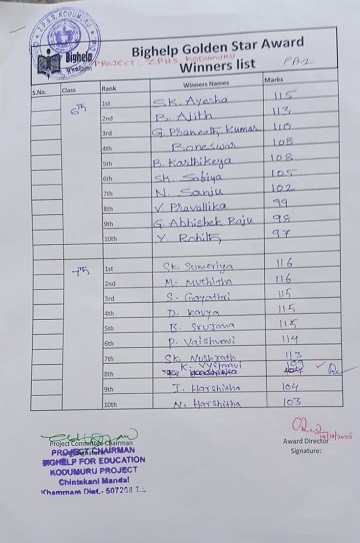 Z.P.H.S. KODUMURU
Bighelp
Bighelp Golden Star Award
PROJECT : Z.P.H.S KODUMURU
Winners list
PA-2
S.No. Class Rank Winners Names Marks
6th 1st SK. Ayesha 115
2nd B. Ajith 113
3rd G. Praneeth Kumar 110
4th Boneswar 108
5th B. Karthikeya 108
6th SK. Sabiya 105
7th N. Sanju 102
8th V. Pravallika 99
9th G. Abhishek Raju 98
10th Y. Rohith 97
7th 1st SK. Sumeriya 116
2nd M. Mushitha 116
3rd S. Gayathri 115
4th D. Kavya 115
5th B. Srujana 115
6th P. Vaishnavi 114
7th SK. Nushrath 113
8th K. Vyshnavi
9th I. Harshitha 104
10th N. Harshitha 103
Project Committee Chairman
PROJECT CHAIRMAN
BIGHELP FOR EDUCATION
KODUMURU PROJECT
Chintakani Mandal
Khammam Dist.- 507208
Award Director
Signature: